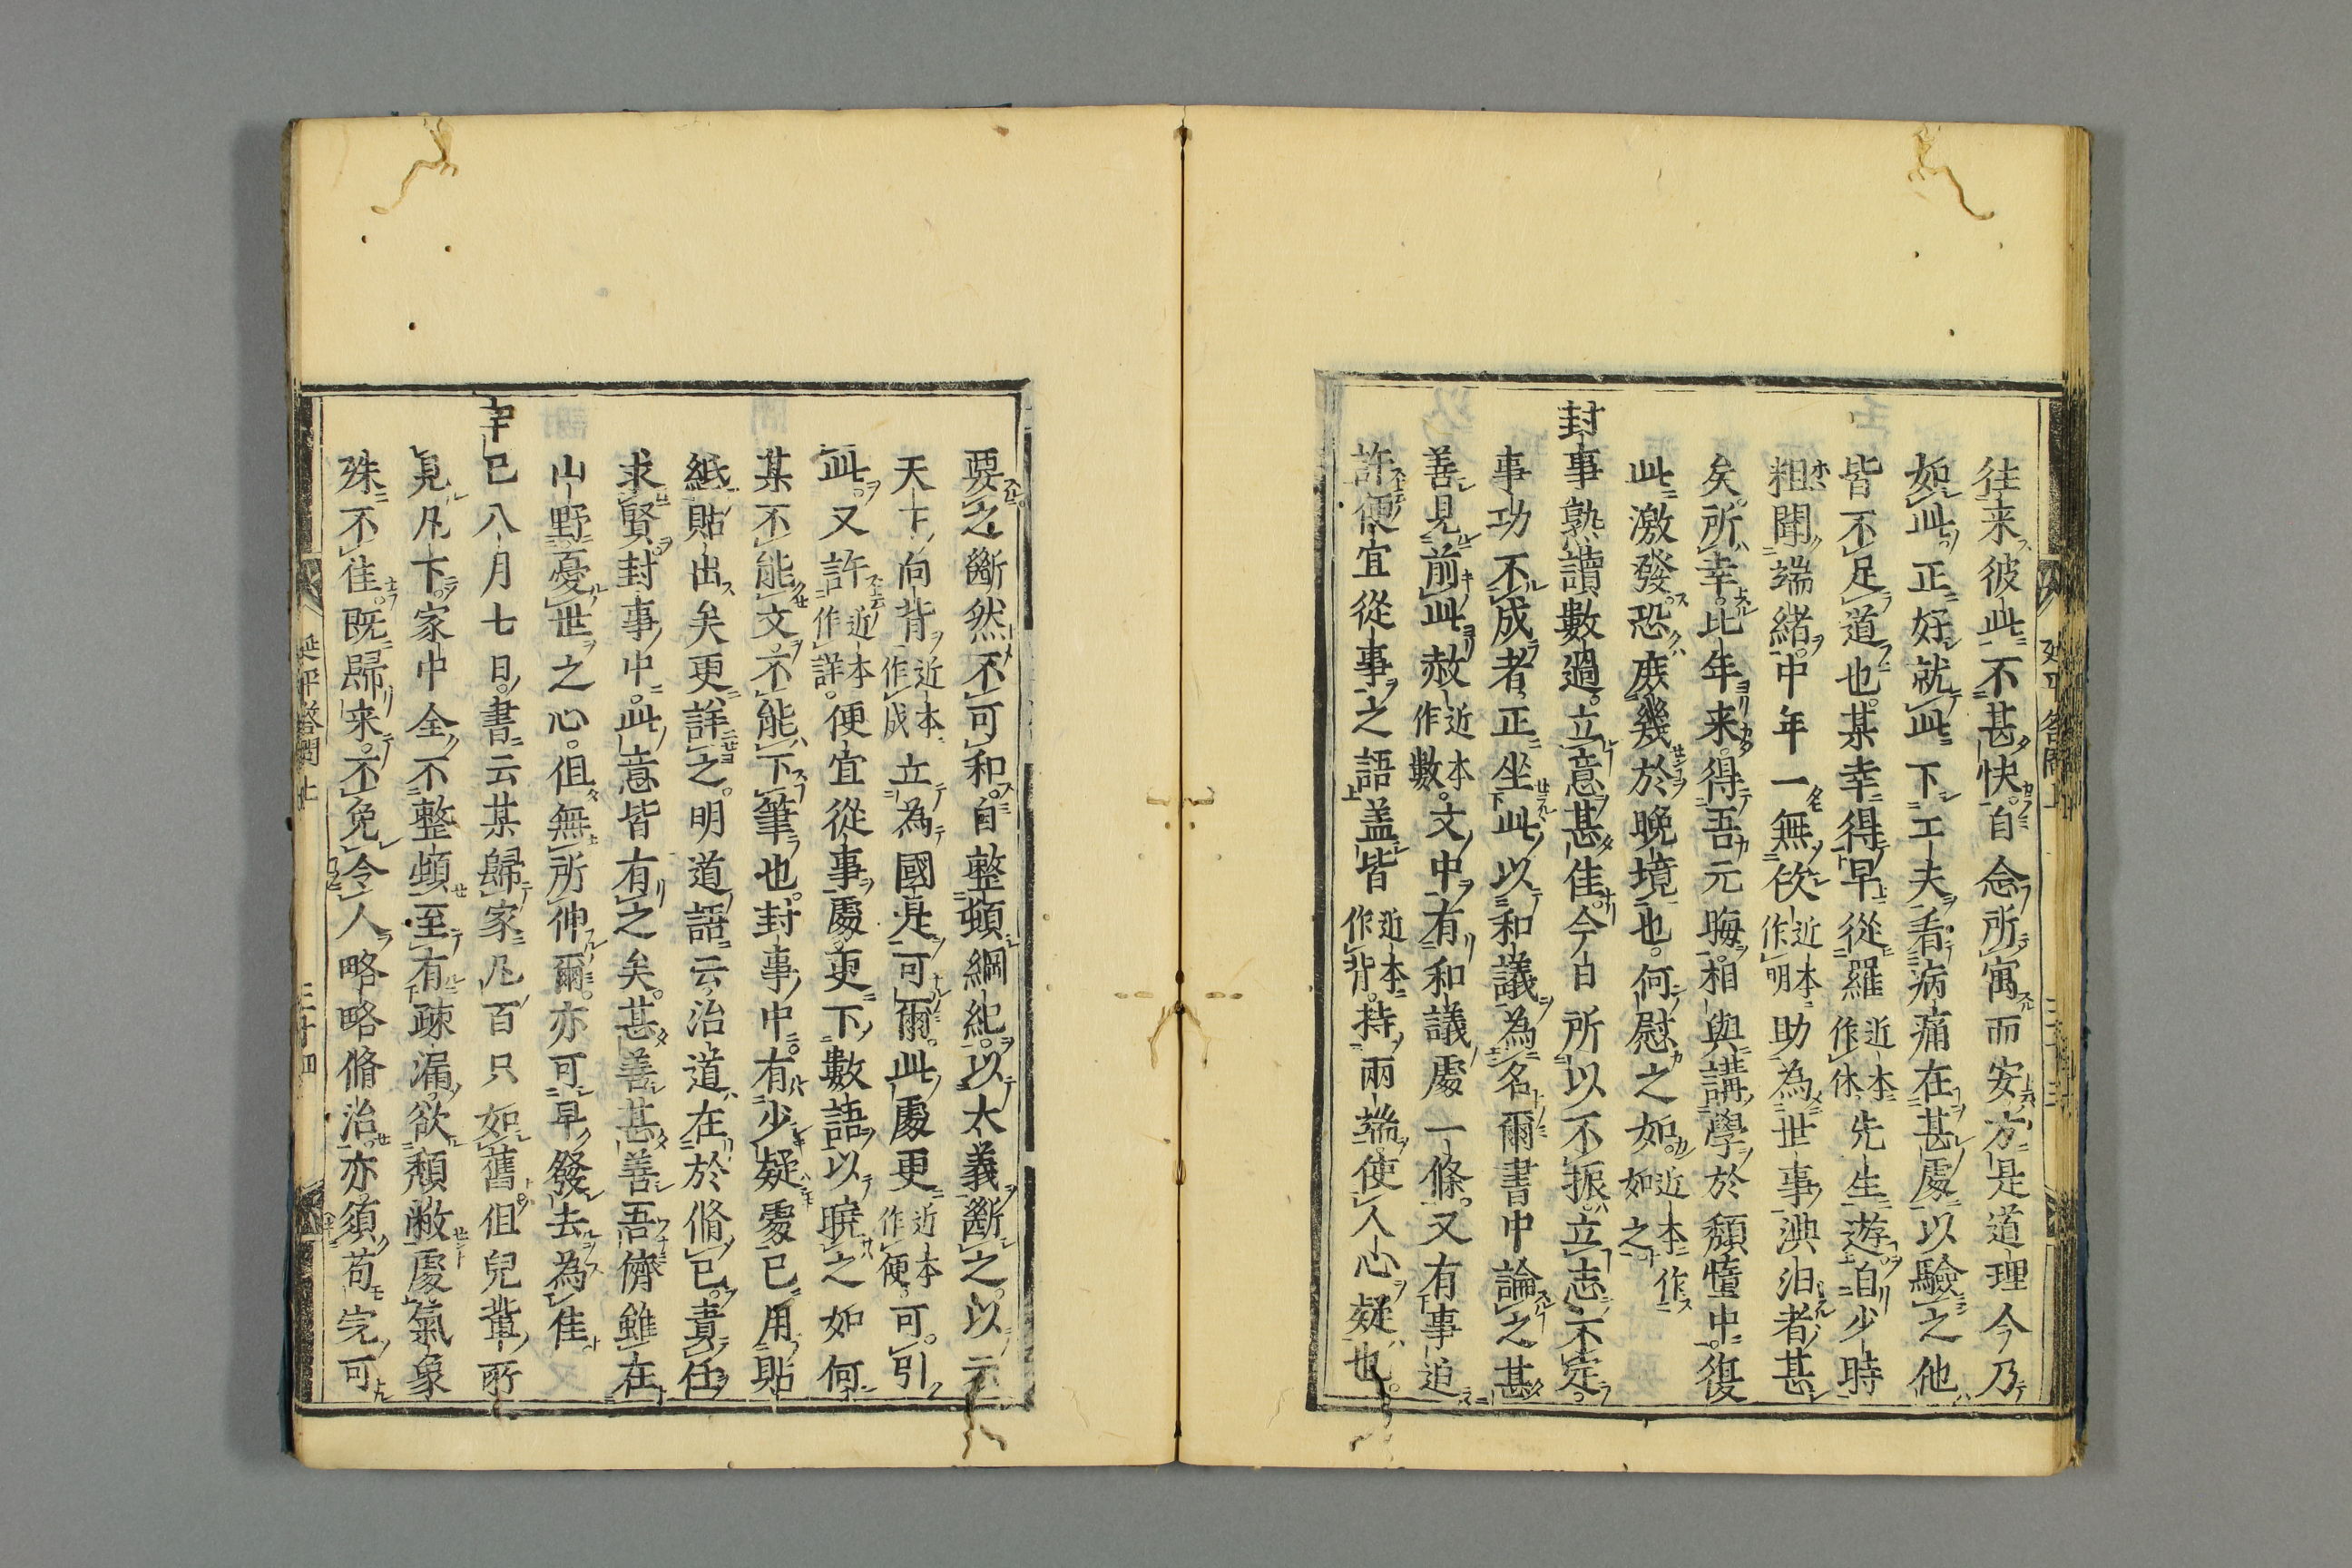 往来彼此不甚快自念所寓而安方是道理今乃
如此正好就此下工夫看病痛在甚處以驗之他
皆不足道也某幸得早從羅近本作休先生遊自少時
粗聞端緒中年一無佽近本作明助為世事淟汩者甚
矣所幸比年来得吾元晦相與講學於頹惰中復
此激發恐庶幾於晚境也何慰之如近本作如之
封事熟讀數過立意甚佳今日所以不振立志不定
事功不成者正坐此以和議為名爾書中論之甚
善見前此赦近本作數文中有和議處一條又有事迫
許便宜從事之語盖皆近本作背持兩端使人心疑也
要之斷然不可和自整頓綱紀以大義斷之以示
天下向背近本作成立為國是可爾此處更近本作便可引
此又許近本作詳便宜從事處更下數語以曉之如何
某不能文不能下筆也封事中有少疑處已用貼
紙貼出矣更詳之明道語云治道在於脩已責任
求賢封事中此意皆有之矣甚善甚善吾儕雖在
山野憂世之心但無所伸爾亦可早發去為佳
辛巳八月七日書云某歸家凡百只如舊但兒輩所
見凡下家中全不整頓至有疎漏欲頹敝處氣象
殊不佳既歸来不免令人略略脩治亦須苟完可
延平答問上
三十三
延平答問上
三十四